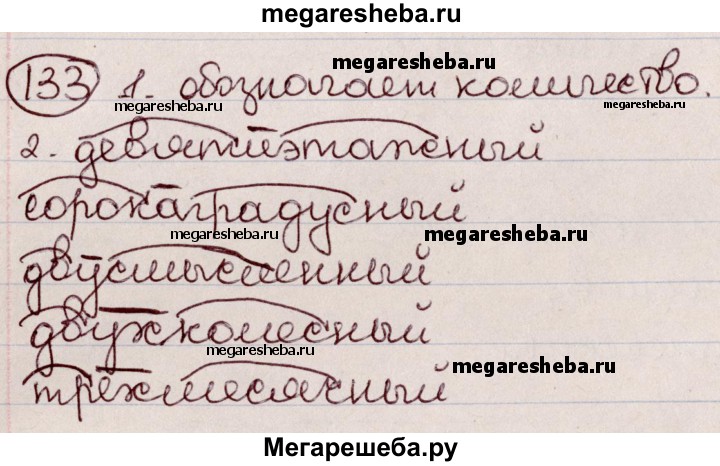 megaresheba.ru
megaresheba.ru
133 1. обозначает количество.
megaresheba.ru
megaresheba.ru
2. девятиэтажный
сорокаградусный
megaresheba.ru
megaresheba.ru
двусмысленный
двухколесный
megaresheba.ru
megaresheba.ru
трёхмесячный
Мегарешеба.ру